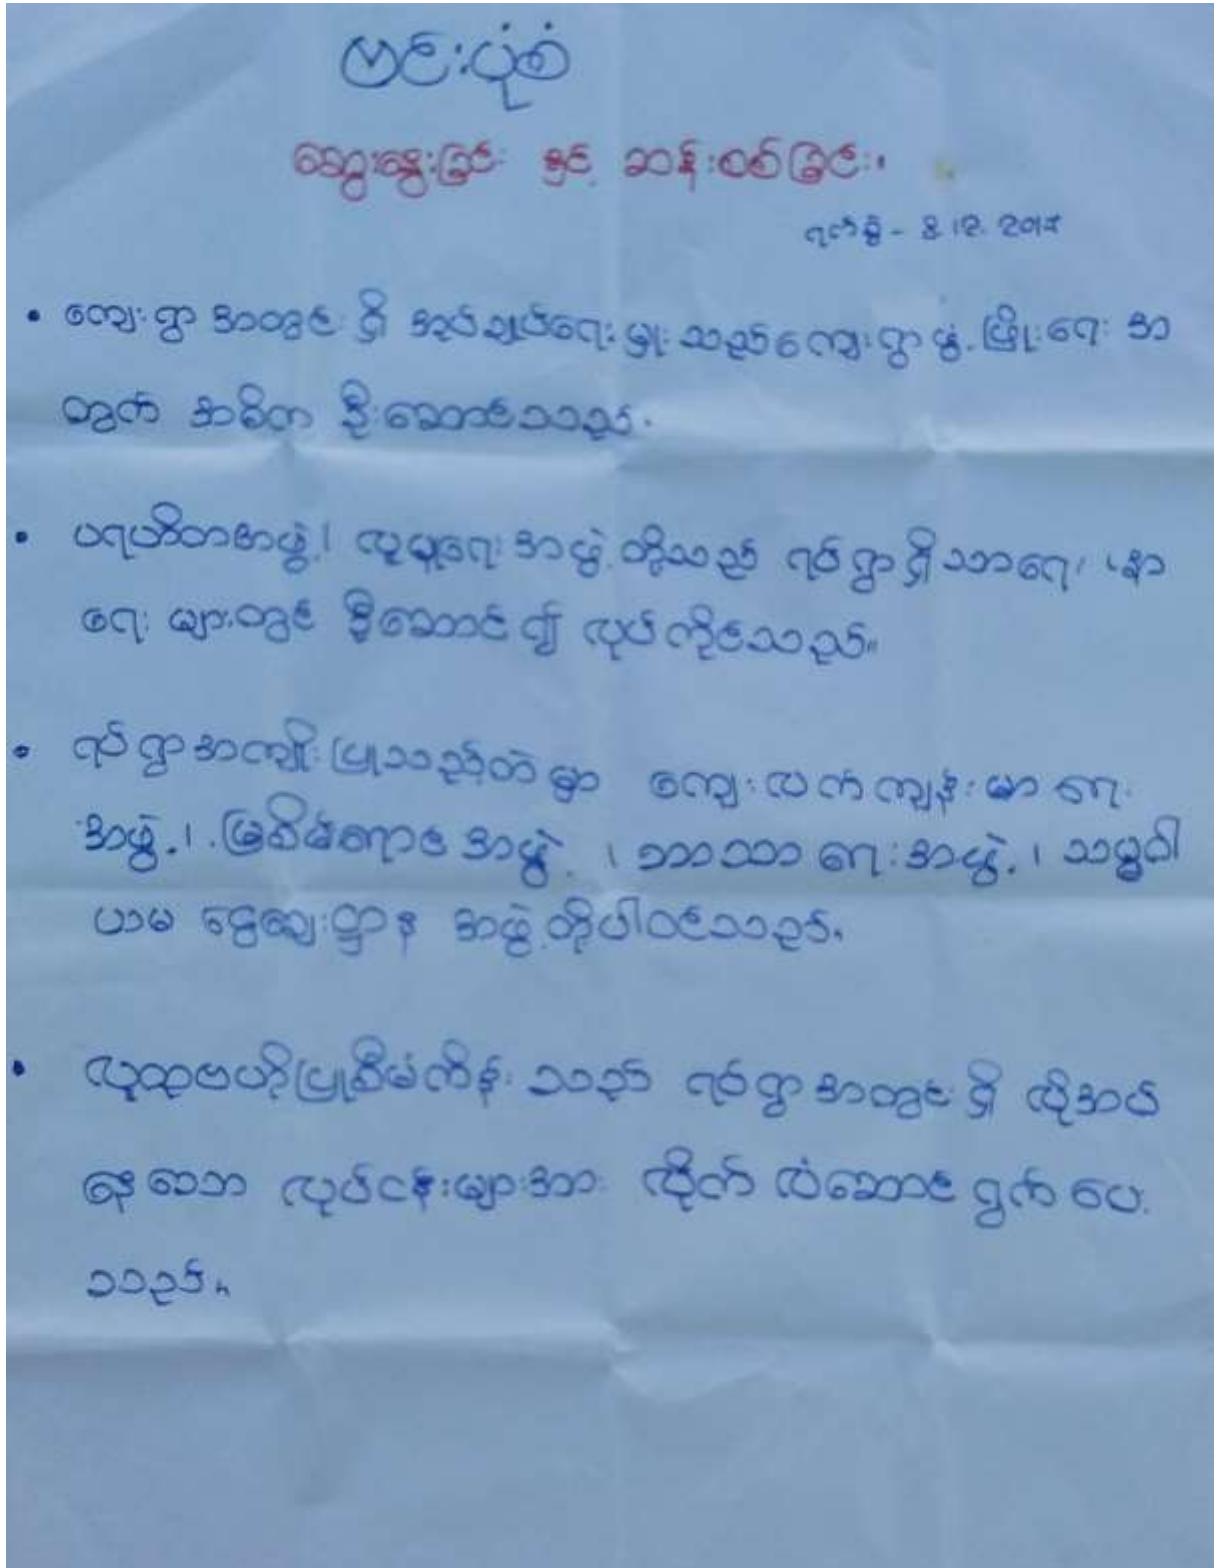 ဗင်းပုံစံ
ဆွေးနွေးခြင်း နှင့် ဆန်းစစ်ခြင်း။
ရက်စွဲ -
• ကျေးရွာအတွင်းရှိ အုပ်ချုပ်ရေးမှုးသည် ကျေးရွာဖွံ့ဖြိုးရေး အ
တွက် အဓိက ဦးဆောင်သည်။
• ပရဟိတအဖွဲ့၊ လူမှုရေးအဖွဲ့တို့သည် ရပ်ရွာရှိ သာရေး၊ နာ
ရေး များတွင် ဦးဆောင်၍ လုပ်ကိုင်သည်။
• ရပ်ရွာအကျိုးပြုသည့်ထဲမှာ ကျေးလက်ကျန်းမာရေး
အဖွဲ့၊ မြစိမ်းရောင်အဖွဲ့၊ ဘာသာရေးအဖွဲ့၊ သမ္မဝါ
ယာမ ငွေချေးဌာန အဖွဲ့တို့ပါဝင်သည်။
• လူထုဗဟိုပြုစီမံကိန်းသည် ရပ်ရွာအတွင်းရှိ လိုအပ်
နေသော လုပ်ငန်းများအား လိုက်လံဆောင်ရွက်ပေး
သည်။